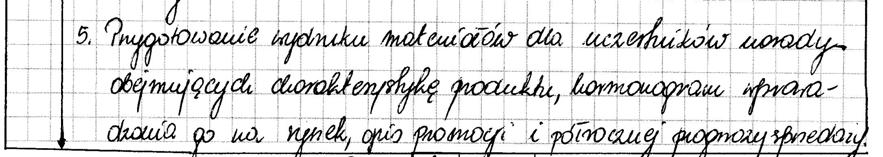 5. Przygotowanie wydruku materiałów dla uczestników narady
obejmujących charakterystykę produktu, harmonogram wprowa-
dzania go na rynek, opis promocji i półrocznej prognozy sprzedaży.